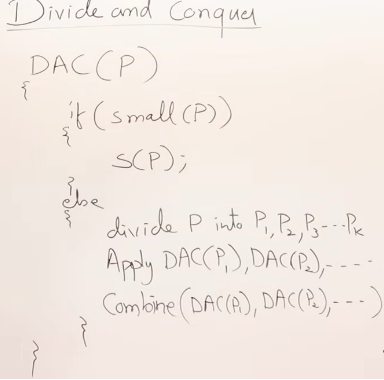 Divide and Conquer
DAC(P)
{
if (small(P))
{
S(P);
}
else
{
divide P into P1, P2, P3---Pk
Apply DAC(P1), DAC(P2),----
Combine(DAC(P1), DAC(P2),---)
}
}